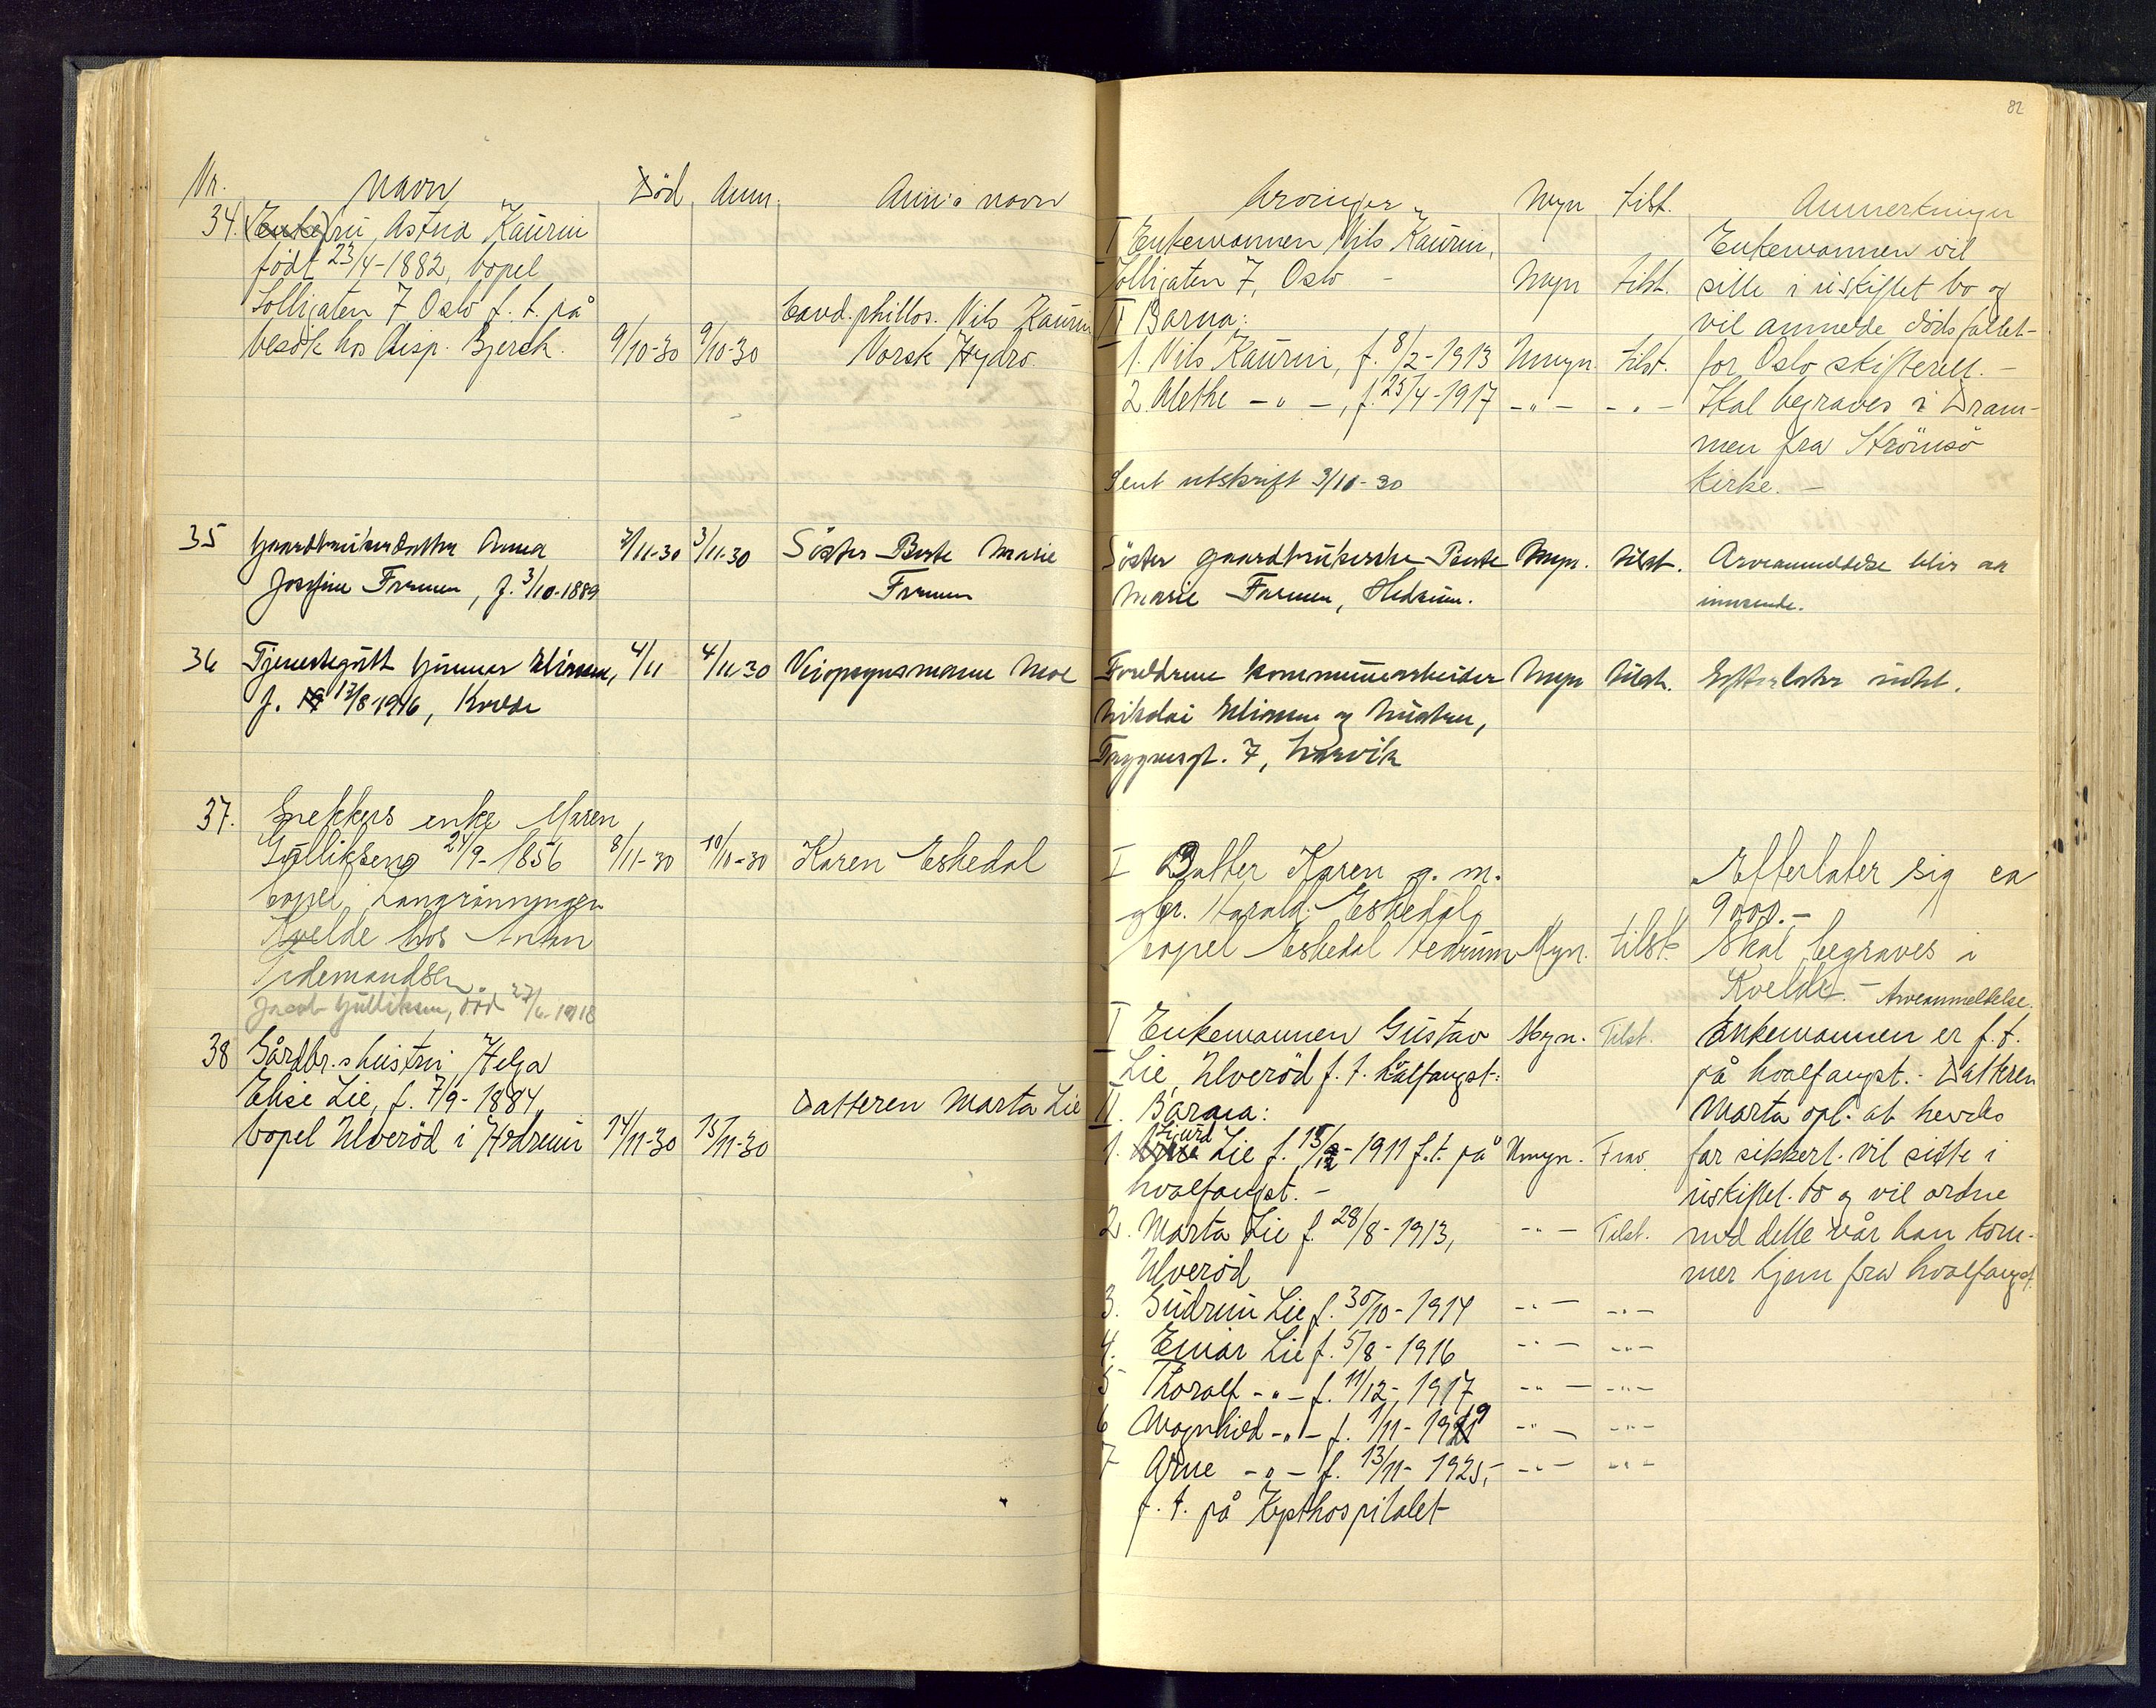 82
Nr. Navn Död Anm. Anm's navn
34. (Enke)fru Astrid Kaurin
født 23/4-1882, bopel
Solligaten 7 Oslo f. t. på
besök hos disp. Bjerck. 9/10-30 9/10-30 Cand. phillos. Nils Kaurin
Norsk Hydro.
35 Gaardbrukerdatter Anna 2/11-30 3/11-30 Søster Berte Marie
Josefine Farmen, f. 3/10-1889 Farmen
36 Tjenestegutt Gunnar Eliassen, 4/11 4/11-30 Veiopsynsmann Moe
f. 12/8 1916, Kvelde
37. Snekkers enke Maren
Gulliksen 24/9-1856 8/11-30 10/11-30 Karen Eskedal
bopel Langrønningen
Kvelde hos Anton
Tidemandsen.
Jacob Gulliksen, död 27/6 1918
38 Gårdbr.s hustru Helga
Elise Lie, f. 7/9-1884, Datteren Marta Lie
bopel Ulveröd i Hedrum 14/11-30 15/11-30
Arvinger Myn tilst. Anmerkninger
I Enkemannen Nils Kaurin, Enkemannen vil
Solligaten 7, Oslo - Myn tilst. sitte i uskiftet bo og
II Barna: vil anmelde dödsfallet
1. Nils Kaurin, f. 8/2-1913 Umyn. tilst. for Oslo skifterett. -
2. Alethe - " -, f. 25/4-1917 - " - - " - Skal begraves i Dram-
men fra Strömsö
Sent utskrift 3/11-30 kirke. -
Søster gaardbrukerske Berte Myn. tilst. Arveanmeldelse blir aa
Marie Farmen, Hedrum. innsende.
Foreldrene kommunearbeider Myn tilst. Efterlater intet.
Nikolai Eliassen og hustru,
Tryggvesgt. 7, Larvik
I Datter Karen g. m. Efterlater sig ca
gbr. Harald Eskedal, 9000.-
bopel Eskedal Hedrum Myn. tilst. Skal begraves i
Kvelde. - Arveanmeldelse.
I Enkemannen Gustav Myn. Tilst. Enkemannen er f. t.
Lie, Ulveröd f. t. hvalfangst. på hvalfangst. - Datteren
II. Barna: Marta opl. at hendes
1. Sjurd Lie f. 15/12-1911 f. t. på Umyn. Frav. far sikkert vil sitte i
hvalfangst. - uskiftet bo og vil ordne
2. Marta Lie f. 28/8-1913, - " - Tilst. med dette når han kom-
Ulveröd mer hjem fra hvalfangst.
3. Gudrun Lie f. 30/10-1914 - " - - " -
4. Einar Lie f. 5/8-1916 - " - - " -
5 Thoralf - " - f. 11/12-1917 - " - - " -
6 Magnhild - " - f. 1/11-1919 - " - - " -
7 Arne - " - f. 13/11-1925, - " - - " -
f. t. på Kysthospitalet